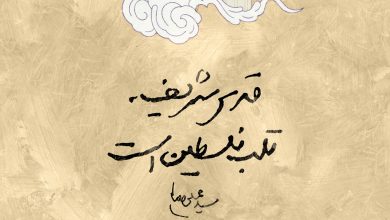 قدس شریف،
قلب فلسطین است
سید علی